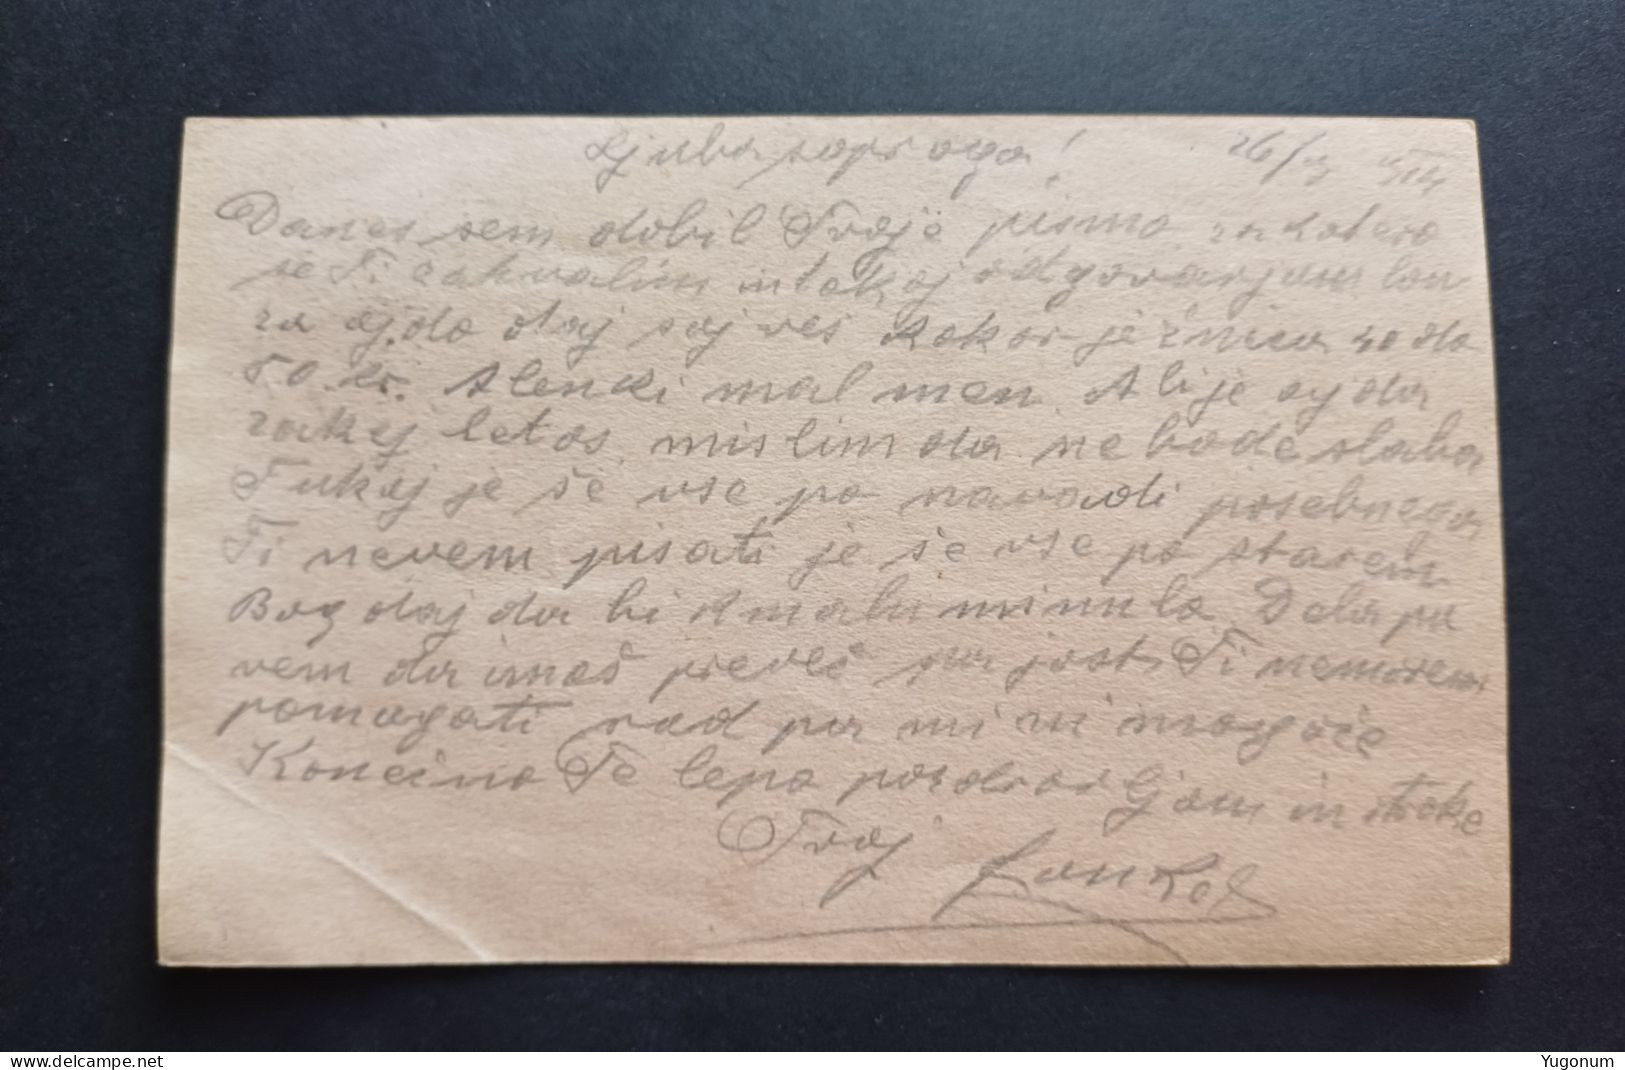 Ljuba soproga!
Danes sem dobil Tvoje pismo za katero
se Ti zahvalim in takoj odgovarjam
za ajdo daj saj veš kakor je
50 kr. Alenki mal men. Ali je ajda
zakej letos mislim da ne bode slaba
Tukaj je še vse po navadi posebnega
Ti nevem pisati je še vse po starem
Bog daj da bi kmalu minulo. Dela pa
vem da imaš preveč pa Ti nemorem
pomagati rad pa mi ni mogoče
Končno Te lepo pozdravljam in otroke
Tvoj
delcampe.net
Yugonum